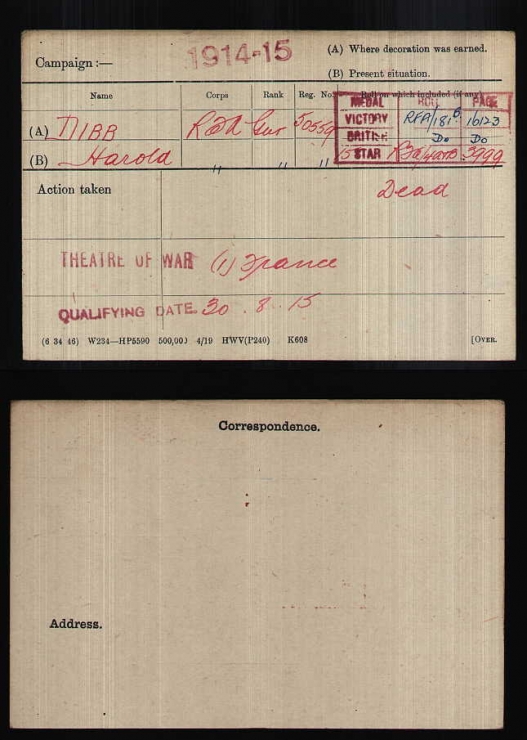 1914-15
Campaign :—
(A) Where decoration was earned.
(B) Present situation.
Name Corps Rank Reg. No. Roll on which included (if any)
MEDAL ROLL PAGE
(A) NIBB RFA Gnr 50559
VICTORY RFA/181B 16123
BRITISH Do Do
(B) Harold " " "
15 STAR 3999
Action taken
Dead
THEATRE OF WAR (1) France
QUALIFYING DATE 30 . 8 . 15
(6 34 46) W234—HP5590 500,000 4/19 HWV(P240) K608 [OVER.
Correspondence.
Address.